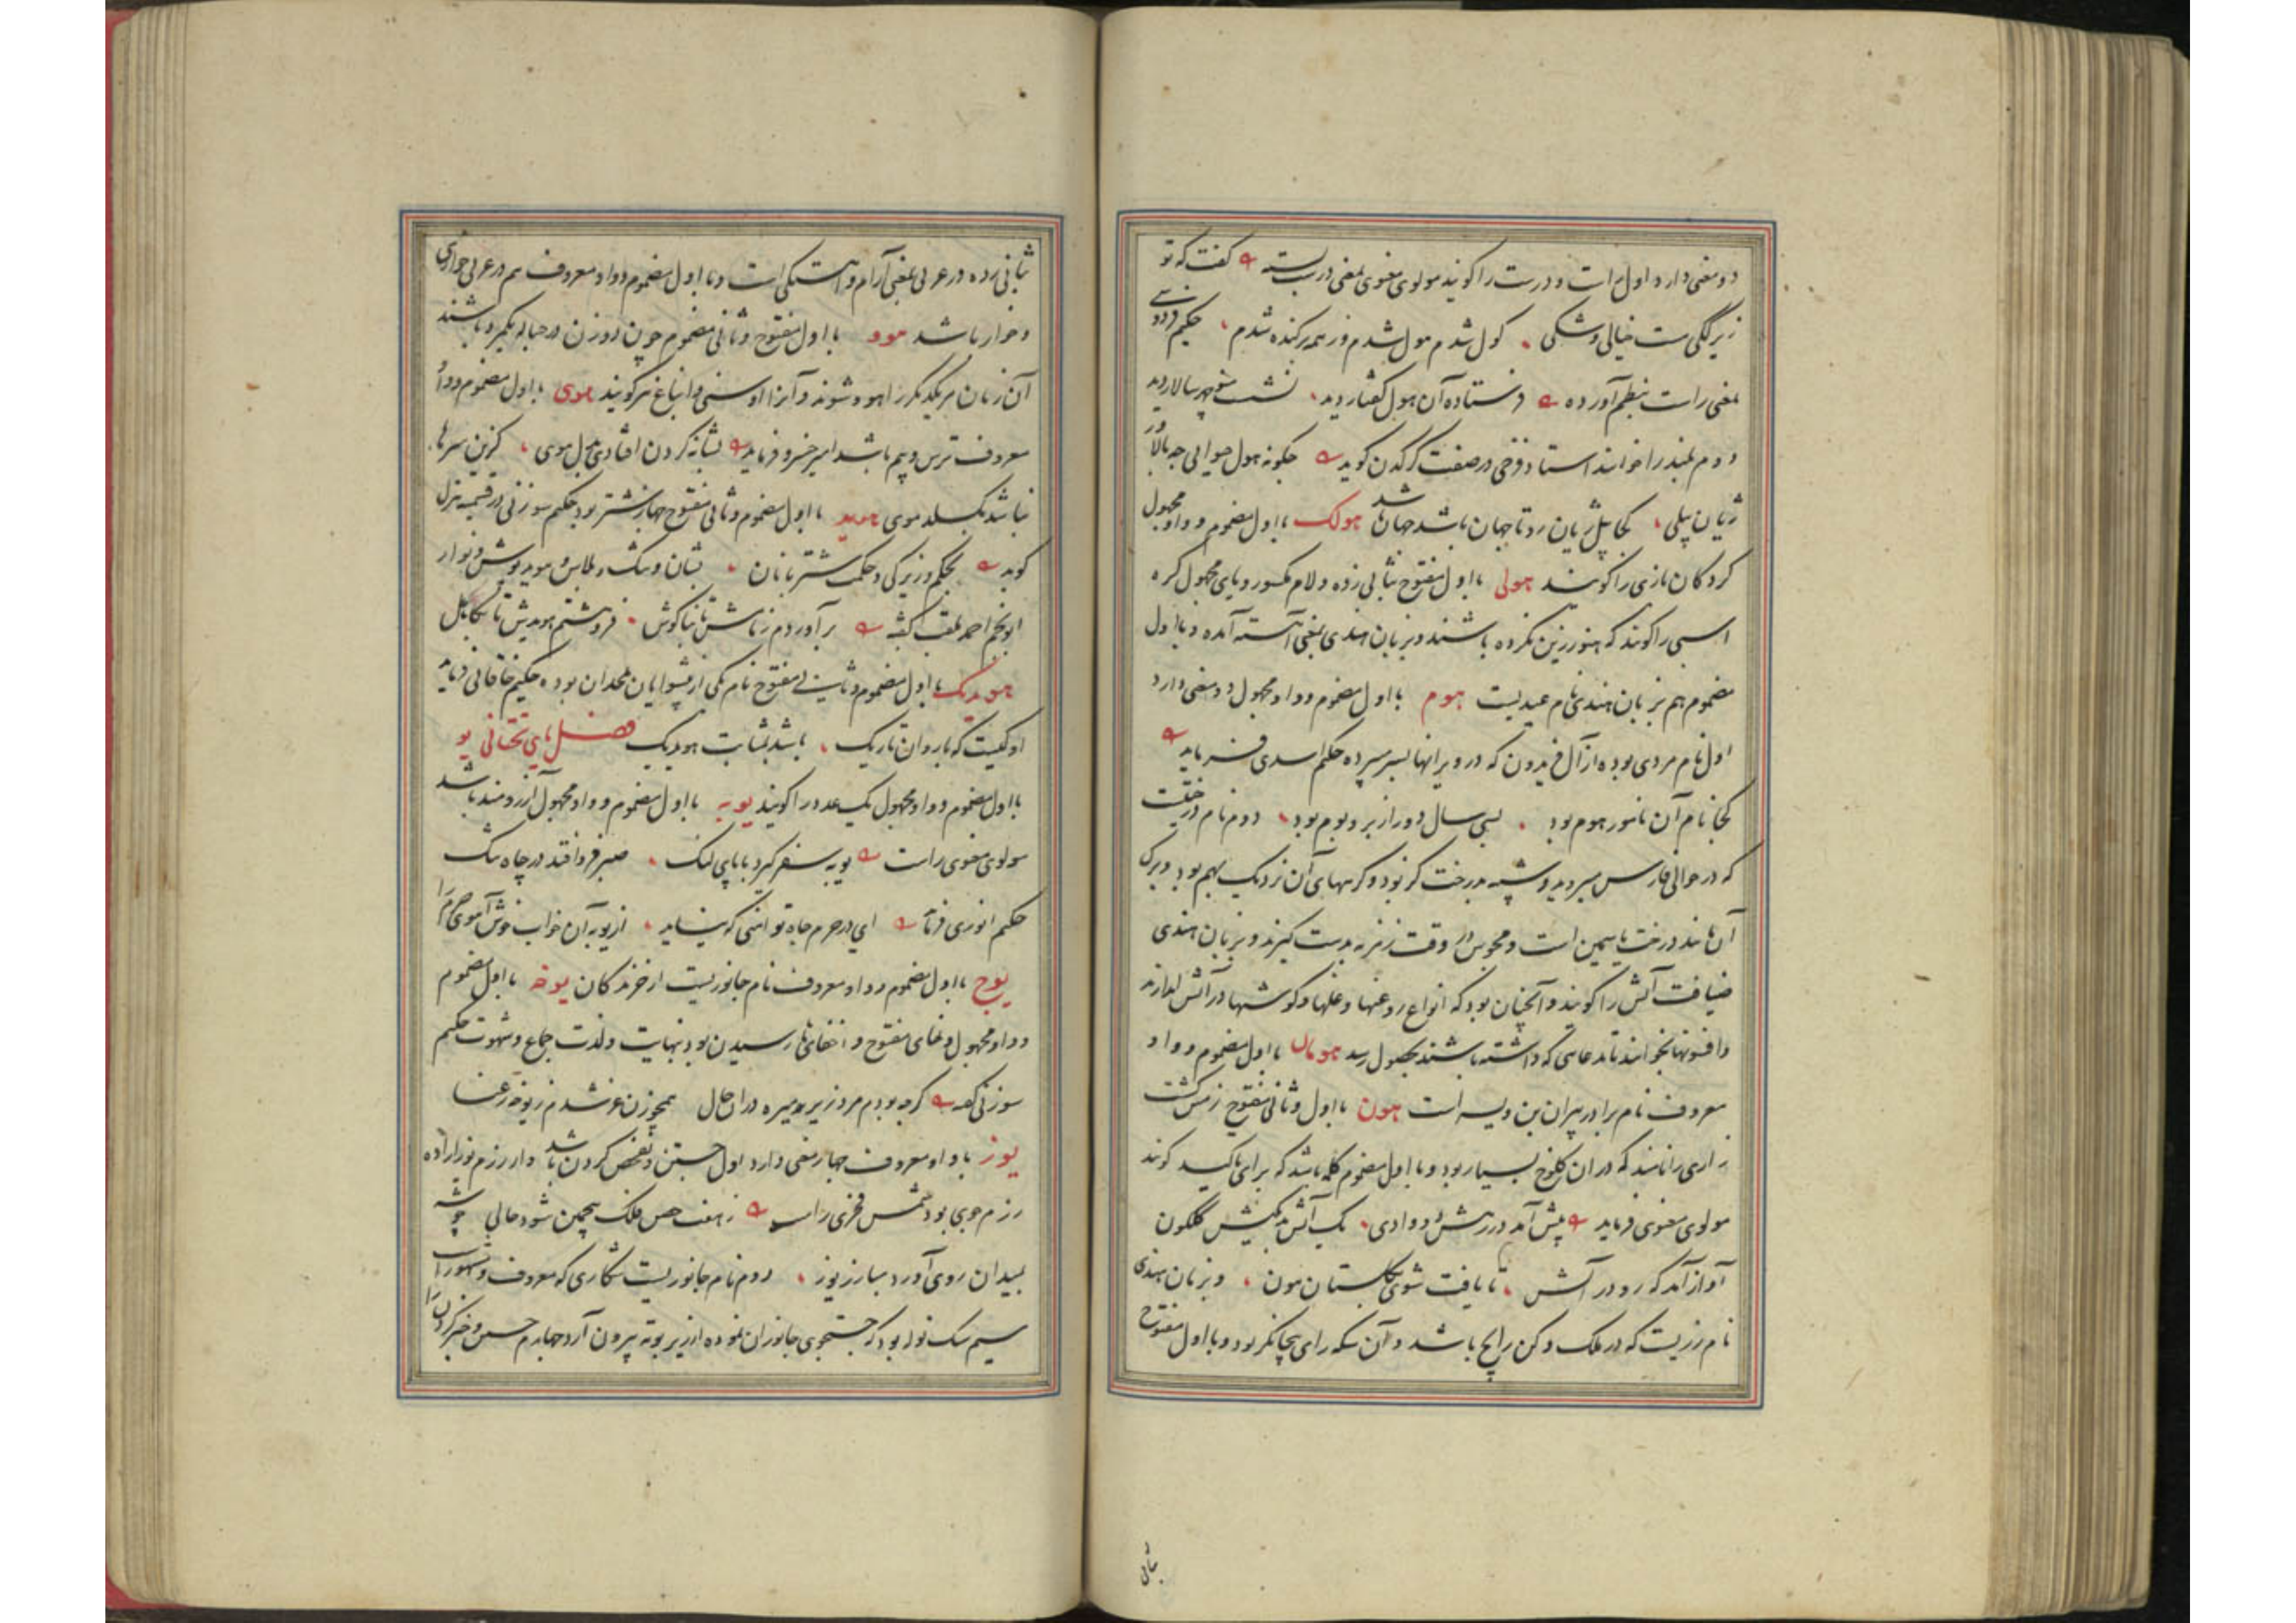 دو معنی دارد اول راست و درست را گویند مولوی معنوی بمعنی درست بسته گفت که تو
زیرککی مست خیالی و شکی گول شدم هول شدم وز همه برکنده شدم حکیم فردوسی
بمعنی راست بنظم آورده فرستاده آن هول گفتار دید نشست منوچهر سالار دید
دوم بلند را خوانند استاد فرخی در صفت کرگدن گوید چگونه هول حیوانی چه بالا ور
ژیان پیلی کجا پیل ژیان رد تا جهان باشد جهان باشد هولک با اول مضموم و واو مجهول
گردکان بازی را گویند هولی با اول مفتوح بثانی زده و لام مکسور و یای مجهول کره
اسبی را گویند که هنوز زین نکرده باشند و بزبان هندی بمعنی آهسته آمده و با اول
مضموم هم بزبان هندی نام عیدیست هوم با اول مضموم و واو مجهول دو معنی دارد
اول نام مردی بوده از آل فریدون که در ویرانها بسر میبرده حکیم اسدی فرماید
کجا نام آن نامور هوم بود بسی سال دور از بر و بوم بود دوم نام درختیست
که در حوالی فارس میروید و شبیه بدرخت گز بود و گرههای آن نزدیک بهم بود و برگ
آن مانند درخت یاسمین است و مجوس در وقت زمزمه بدست گیرند و بزبان هندی
ضیافت آتش را گویند و آنچنان بود که انواع روغنها و غلها و گوشتها در آتش اندازند
و افسونها بخوانند تا مدعایی که داشته باشند بحصول رسد هومان با اول مضموم و واو
معروف نام برادر پیران بن ویسه است هون با اول و ثانی مفتوح زمین کشت
زاری را نامند که در آن کلوخ بسیار بود و با اول مضموم کلمه باشد که برای تاکید گویند
مولوی معنوی فرماید پیش آمد در رهش دو وادی یک آتش بد یکیش گلگون
آواز آمد که رو در آتش تا یافت شوی گلستان هون و بزبان هندی
نام زریست که در ملک دکن رایج باشد و آن سکه رای بیجانگر بود و با اول مفتوح
ثانی
ثانی زده در عربی بمعنی آرام و آهستگی است و با اول مضموم و واو معروف هم در عربی خواری
و خوار باشد هوو با اول مفتوح و ثانی مضموم چون دو زن در حباله یکمرد باشند
آن زنان مر یکدیگر را هوو شوند و آنرا اوسنی و انباغ نیز گویند هوی با اول مضموم و واو
معروف ترس و بیم باشد امیر خسرو فرماید شانه کردن افتادی بجل هوی کزین سر تا
نباشد بگسلد موی هوید با اول مضموم و ثانی مفتوح جهاز شتر بود حکیم سوزنی در قسمیه هزل
گوید بحکم و زیرکی و حکمت شتربانان بتان و تنگ و پلاس و هوید و پوشش و نوار
ابونجم احمد ملقب گفته برآوردم زمامش تا بناگوش فرو هشتم هویدش تا بکاهل
هویدک با اول مضموم و ثانی مفتوح نام یکی از پیشوایان ملحدان بوده حکیم خاقانی فرماید
او کیست که با روان تاریک باشد بمثابت هویدک فصل یای تحتانی یو
با اول مضموم و واو مجهول یک عدد را گویند یوبه با اول مضموم و واو مجهول آرزومند باشد
مولوی معنوی راست یوبه سفر گیرد با پای لنگ صبر فرو افتد در چاه تنگ
حکیم انوری فرماید ای در حرم جاه تو امنی که نیاید از یوبه آن خواب خوش آهوی حرم را
یوج با اول مضموم و واو معروف نام جانوریست از خزندگان یوخه با اول مضموم
و واو مجهول و خای مفتوح و اخفای ها رسیدن بود بنهایت و لذت جماع و شهوت حکیم
سوزنی گفته گرچه بودم مرد زیر بومیره در آن حال همچو زن غرشدم ز یوخه رعنا
یوز با واو معروف چهار معنی دارد اول جستن و تفحص کردن باشد و از رزم یوز اراده
رزم جوی بود شمس فخری راست ز هفت حصن فلک همچمن شود حالی چو شه
بمیدان روی آورد مبارز یوز دوم نام جانوریست شکاری که معروف و مشهور است
سیم سگ توله بود که جستجوی جانوران نموده از زیر بوته بیرون آرد چهارم جستن و خیز کردن را